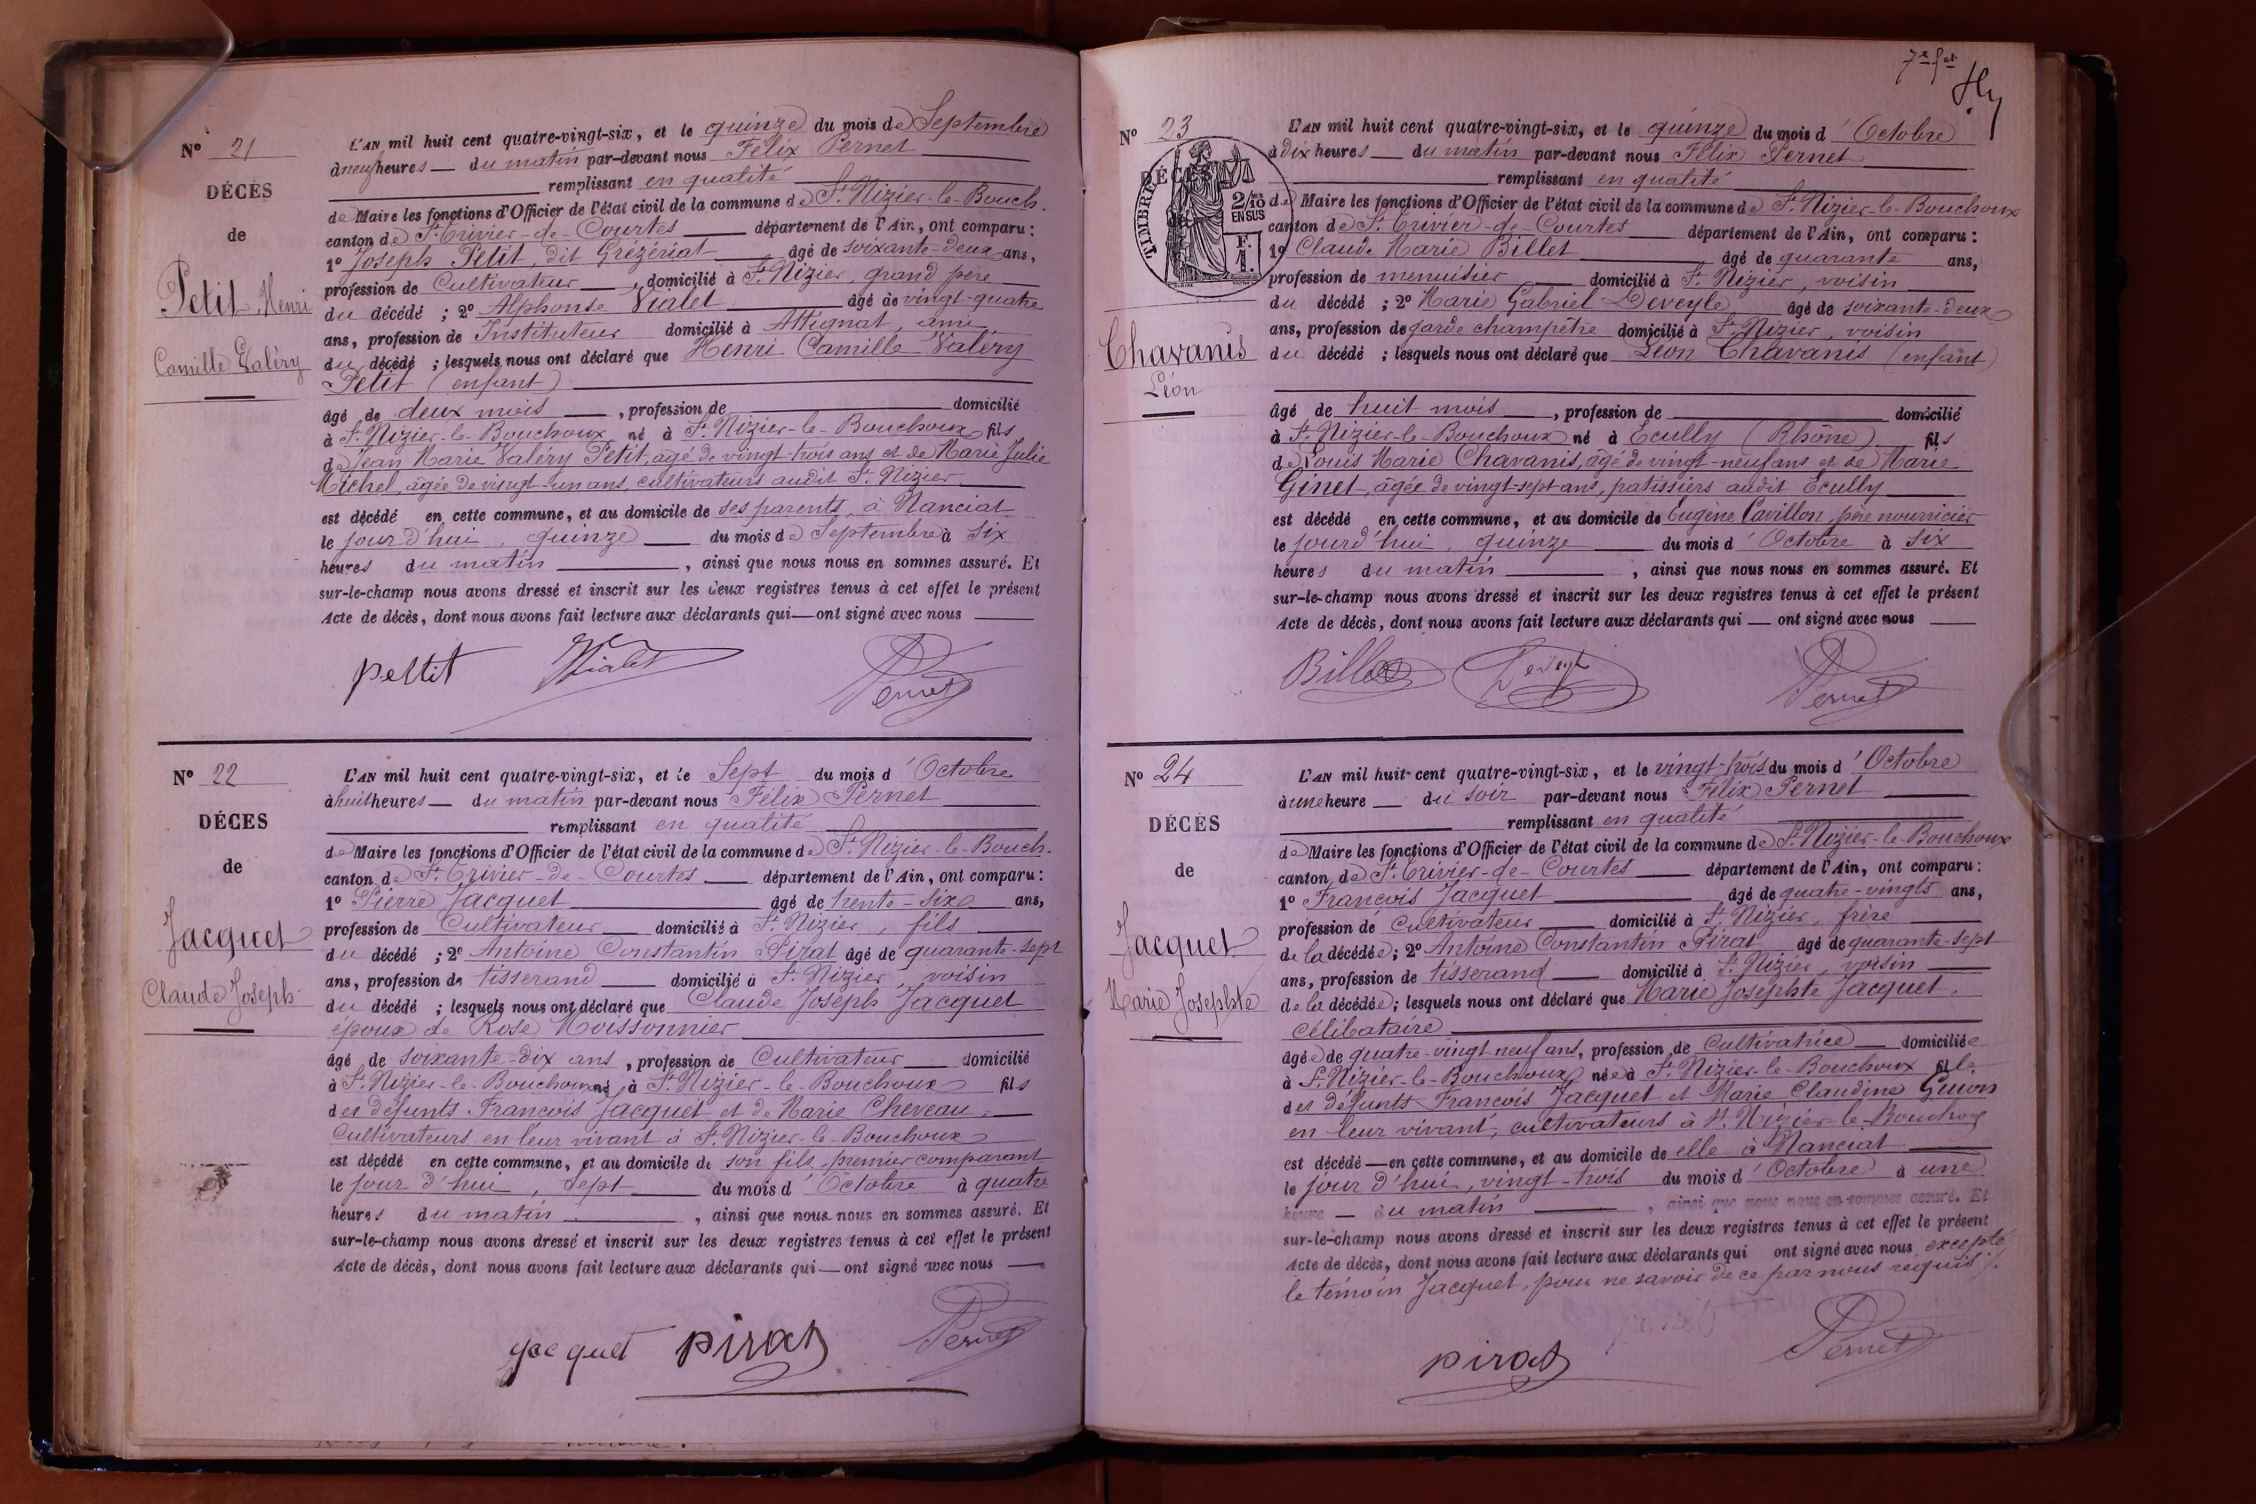 Nº 21
DÉCÈS
de
Petit Henri
Camille Valéry
L'AN mil huit cent quatre-vingt-six, et le quinze du mois de Septembre
à neuf heures — du matin par-devant nous Félix Pernet
remplissant en qualité
de Maire les fonctions d'Officier de l'état civil de la commune de St Nizier-le-Bouch.
canton de St Trivier-de-Courtes département de l'Ain, ont comparu :
1º Joseph Petit, dit Grézériat âgé de soixante-deux ans,
profession de Cultivateur, domicilié à St Nizier, grand père
du décédé ; 2º Alphonse Vialet âgé de vingt-quatre
ans, profession de Instituteur domicilié à Attignat, ami
du décédé ; lesquels nous ont déclaré que Henri Camille Valéry
Petit (enfant)
âgé de deux mois, profession de domicilié
à St Nizier-le-Bouchoux né à St Nizier-le-Bouchoux fils
de Jean Marie Valéry Petit, âgé de vingt-trois ans et de Marie Julie
Michel, âgée de vingt-un ans, cultivateurs audit St Nizier
est décédé en cette commune, et au domicile de ses parents, à Nanciat
le jour d'hui, quinze du mois de Septembre à six
heures du matin, ainsi que nous nous en sommes assuré. Et
sur-le-champ nous avons dressé et inscrit sur les deux registres tenus à cet effet le présent
Acte de décès, dont nous avons fait lecture aux déclarants qui — ont signé avec nous
pettit Vialet Pernet
Nº 22
DÉCES
de
Jacquet
Claude Joseph
L'AN mil huit cent quatre-vingt-six, et le Sept du mois d'Octobre
à huit heures — du matin par-devant nous Félix Pernet
remplissant en qualité
de Maire les fonctions d'Officier de l'état civil de la commune de St Nizier-le-Bouch.
canton de St Trivier-de-Courtes département de l'Ain, ont comparu :
1º Pierre Jacquet âgé de trente-six ans,
profession de Cultivateur domicilié à St Nizier, fils
du décédé ; 2º Antoine Constantin Pirat âgé de quarante-sept
ans, profession de tisserand domicilié à St Nizier, voisin
du décédé ; lesquels nous ont déclaré que Claude Joseph Jacquet
époux de Rose Moissonnier
âgé de soixante-dix ans, profession de Cultivateur domicilié
à St Nizier-le-Bouchoux né à St Nizier-le-Bouchoux fils
des défunts François Jacquet et de Marie Cheveau,
Cultivateurs en leur vivant à St Nizier-le-Bouchoux
est décédé en cette commune, et au domicile de son fils, premier comparant
le jour d'hui, sept du mois d'Octobre à quatre
heures du matin, ainsi que nous nous en sommes assuré. Et
sur-le-champ nous avons dressé et inscrit sur les deux registres tenus à cet effet le présent
Acte de décès, dont nous avons fait lecture aux déclarants qui — ont signé avec nous
jacquet pirat Pernet
Nº 23
DÉCÈS
TIMBRE
2/10
EN SUS
F.
1.
Chavanis
Léon
L'AN mil huit cent quatre-vingt-six, et le quinze du mois d'Octobre
à dix heures — du matin par-devant nous Félix Pernet
remplissant en qualité
de Maire les fonctions d'Officier de l'état civil de la commune de St Nizier-le-Bouchoux
canton de St Trivier-de-Courtes département de l'Ain, ont comparu :
1º Claude Marie Billet âgé de quarante ans,
profession de menuisier domicilié à St Nizier, voisin
du décédé ; 2º Marie Gabriel Deveyle âgé de soixante-deux
ans, profession de garde champêtre domicilié à St Nizier, voisin
du décédé ; lesquels nous ont déclaré que Léon Chavanis (enfant)
âgé de huit mois, profession de domicilié
à St Nizier-le-Bouchoux né à Ecully (Rhône) fils
de Louis Marie Chavanis, âgé de vingt-neuf ans et de Marie
Ginet, âgée de vingt-sept ans, patissiers audit Ecully
est décédé en cette commune, et au domicile de Eugène Cavillon, père nourricier
le jourd'hui, quinze du mois d'Octobre à six
heures du matin, ainsi que nous nous en sommes assuré. Et
sur-le-champ nous avons dressé et inscrit sur les deux registres tenus à cet effet le présent
Acte de décès, dont nous avons fait lecture aux déclarants qui — ont signé avec nous
Billet Deveyle Pernet
Nº 24
DÉCÈS
de
Jacquet
Marie Josephte
L'AN mil huit cent quatre-vingt-six, et le vingt-trois du mois d'Octobre
à une heure — du soir par-devant nous Félix Pernet
remplissant en qualité
de Maire les fonctions d'Officier de l'état civil de la commune de St Nizier-le-Bouchoux
canton de St Trivier-de-Courtes département de l'Ain, ont comparu :
1º François Jacquet âgé de quatre-vingts ans,
profession de Cultivateur domicilié à St Nizier, frère
de la décédée ; 2º Antoine Constantin Pirat âgé de quarante-sept
ans, profession de tisserand domicilié à St Nizier, voisin
de la décédée ; lesquels nous ont déclaré que Marie Josephte Jacquet,
célibataire
âgée de quatre-vingt-neuf ans, profession de Cultivatrice domiciliée
à St Nizier-le-Bouchoux née à St Nizier-le-Bouchoux fille
des défunts François Jacquet et Marie Claudine Guion
en leur vivant, cultivateurs à St Nizier-le-Bouchoux
est décédé — en cette commune, et au domicile de elle à Nanciat
le jour d'hui, vingt-trois du mois d'Octobre à une
heure — du matin, ainsi que nous nous en sommes assuré. Et
sur-le-champ nous avons dressé et inscrit sur les deux registres tenus à cet effet le présent
Acte de décès, dont nous avons fait lecture aux déclarants qui ont signé avec nous, excepté
le témoin Jacquet, pour ne savoir de ce par nous requis.
pirat Pernet